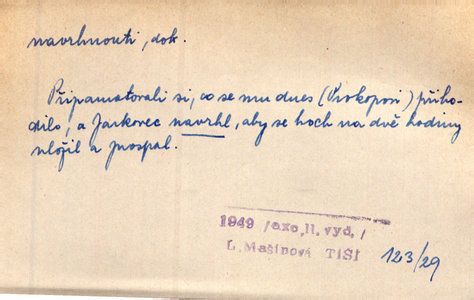 navrhnouti, dok.
Připamatovali si, co se mu dnes (Prokopovi) přiho-
dilo, a Jarkovec navrhl, aby se hoch na dvě hodiny
uložil a prospal.
1949 /exc,II. vyd./
L.Mašínová TIŠI
123/29